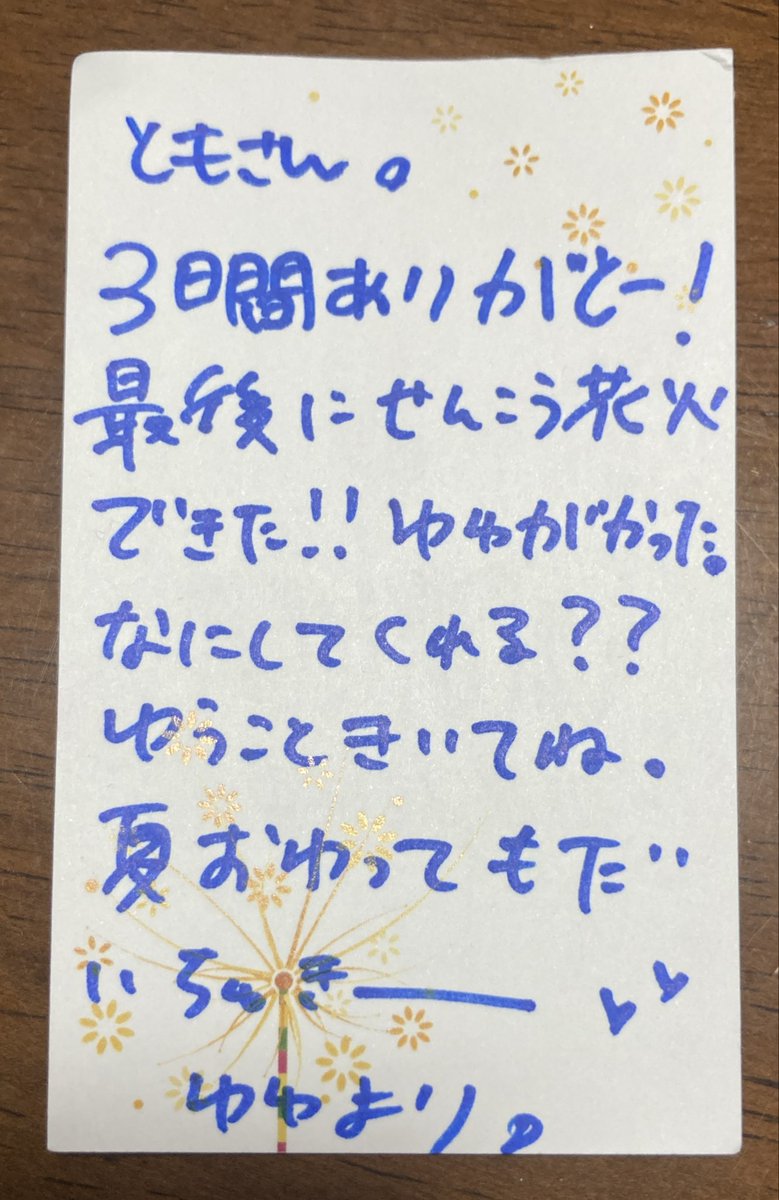 ともさん。
3日間ありがとー!
最後にせんこう花火
できた!! ゆゆがかった。
なにしてくれる??
ゆうこときいてね。
夏おわってもだ
いちゅきー
ゆゆより。